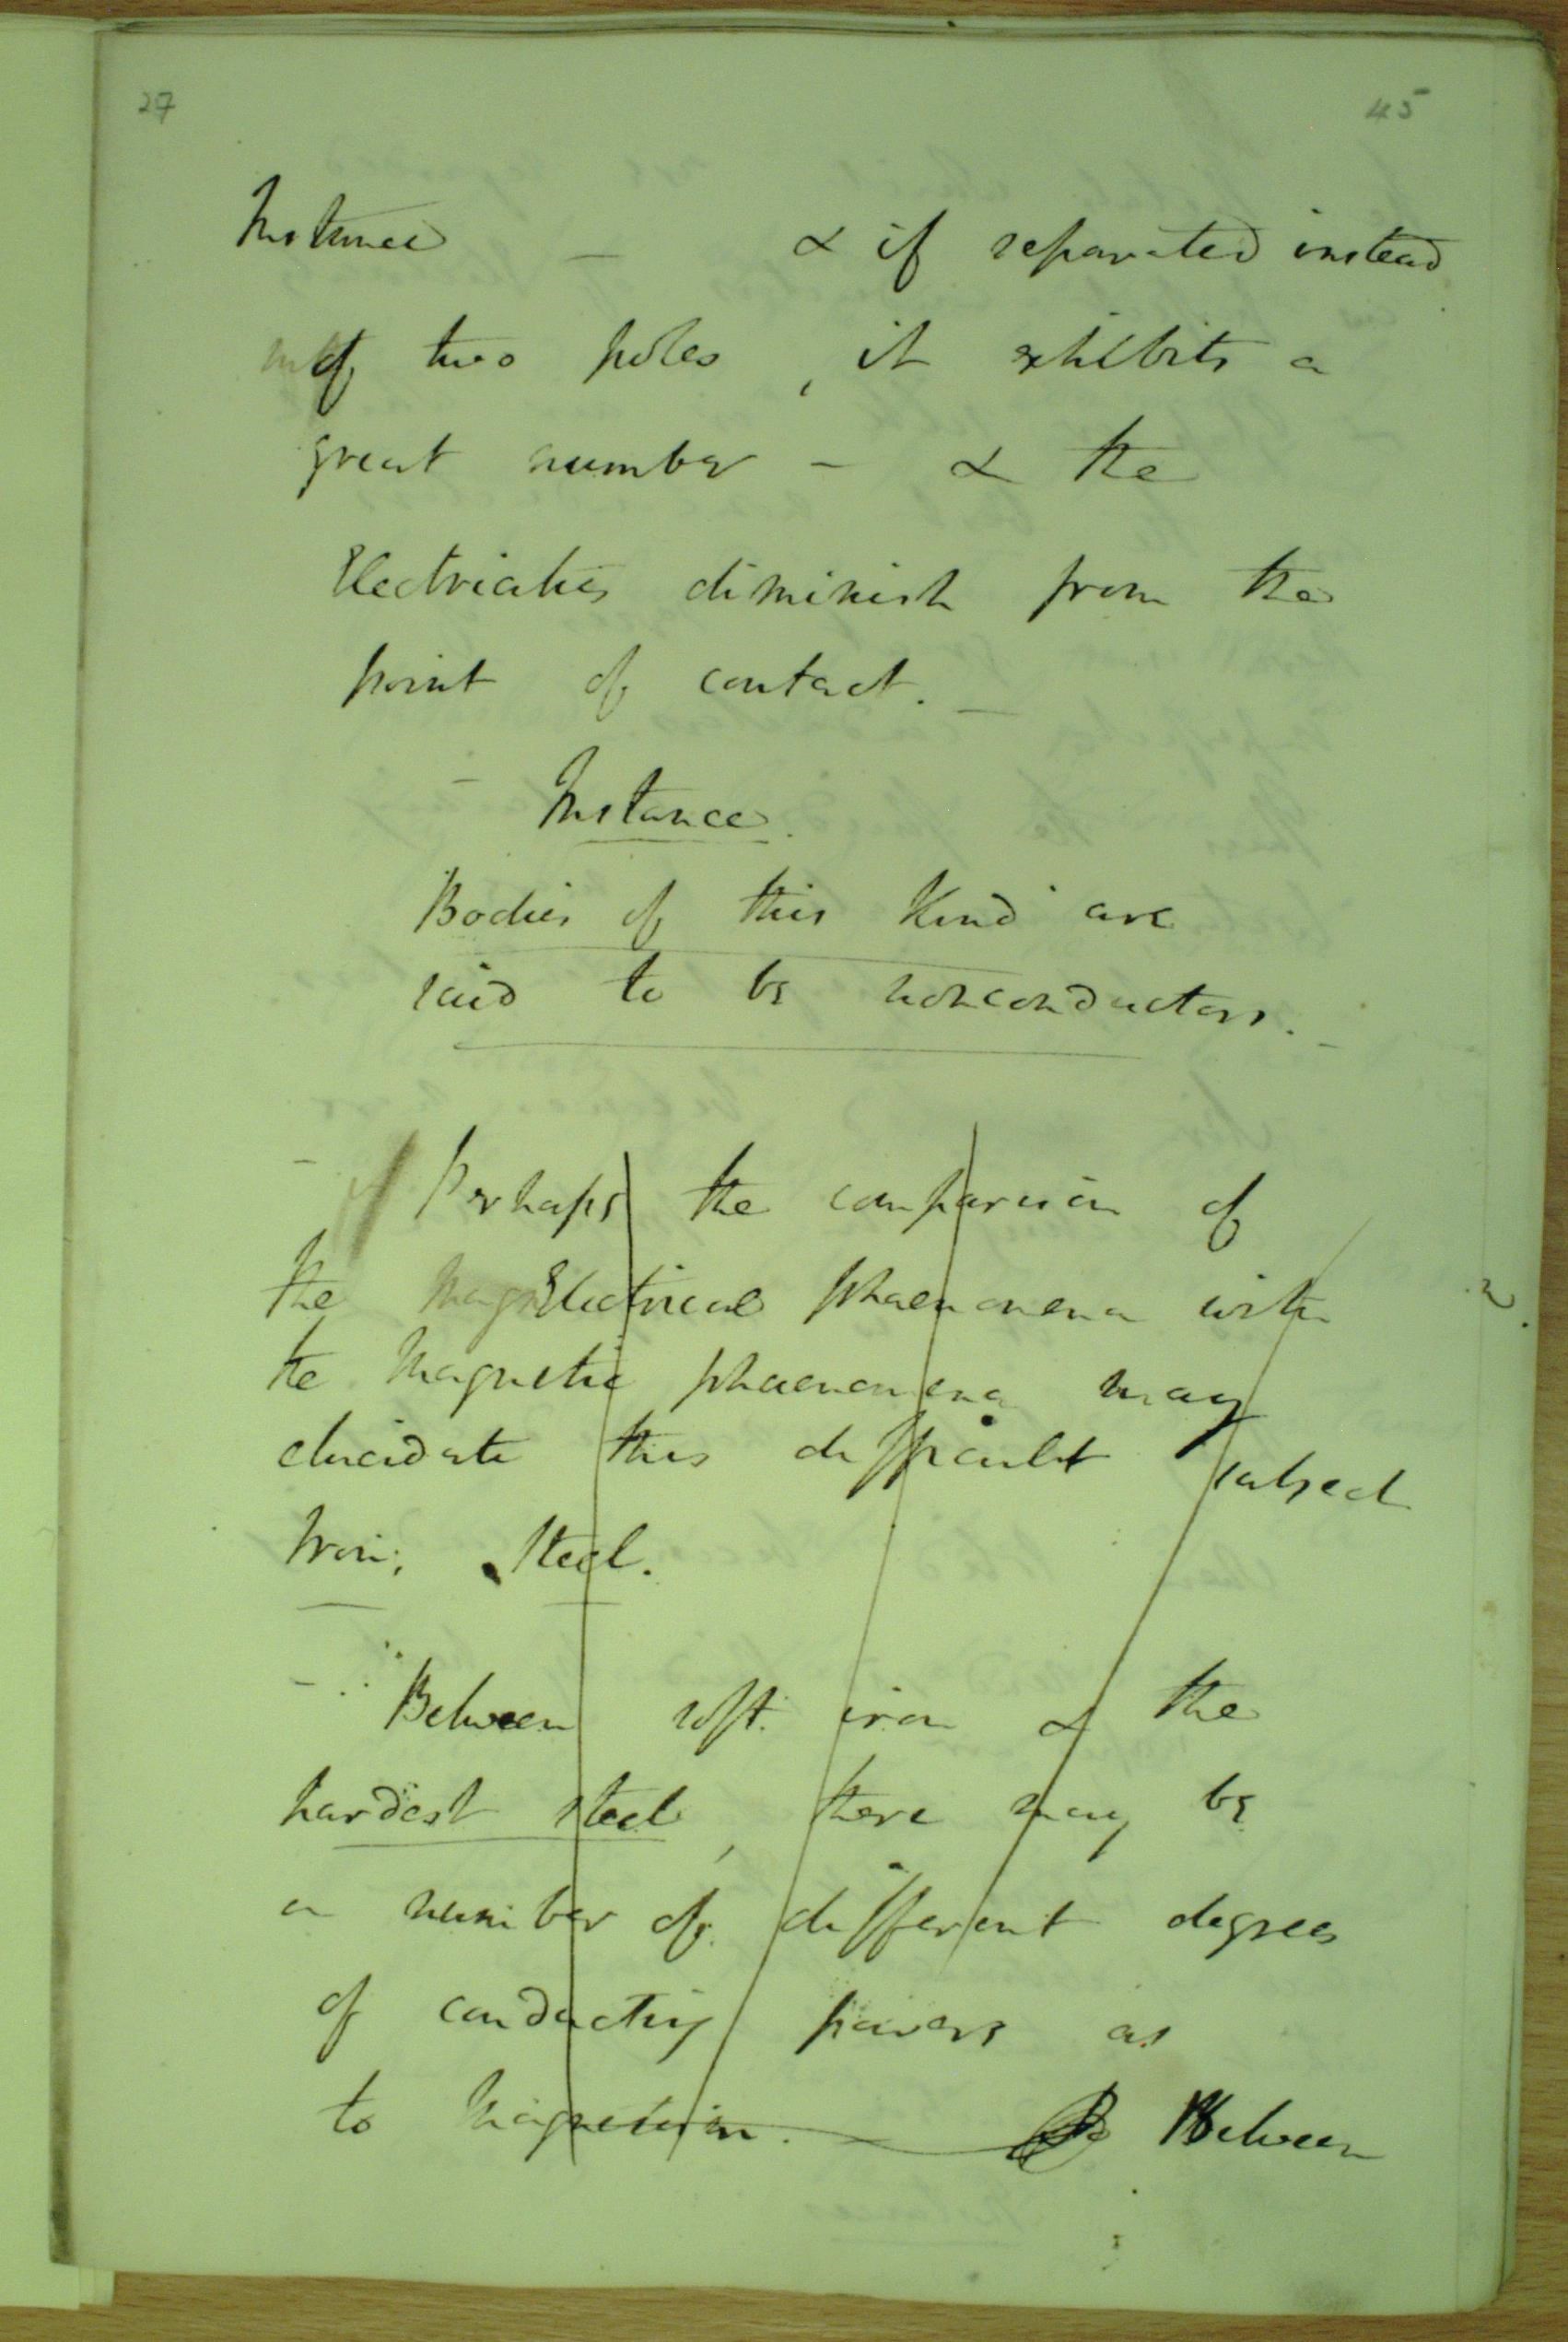 27 45
Instance — & if separated instead
of two poles, it exhibits a
great number — & the
Electricities diminish from the
point of contact. —
— Instance.
Bodies of this kind are
said to be nonconductors. —
— Perhaps the comparison of
the Electrical phaenomena with
the Magnetic phaenomena may
elucidate this difficult subject
Iron, Steel.
— Between soft iron & the
hardest steel, there may be
a number of different degrees
of conducting powers as
to Magnetism. — Between